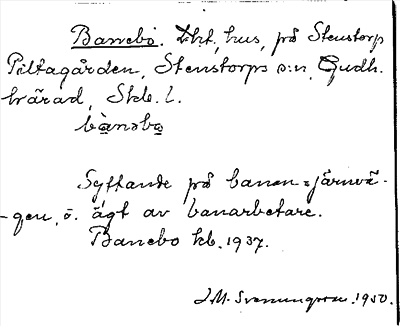 Banebo. Lht, hus, på Stenstorp
Piltagården, Stenstorps s:n, Gudh.
härad, Skb. l.
bànəbo
Syftande på banan = järnvä-
-gen, o. ägt av banarbetare.
Banebo kb. 1937.
J.M. Svenungsson. 1950.